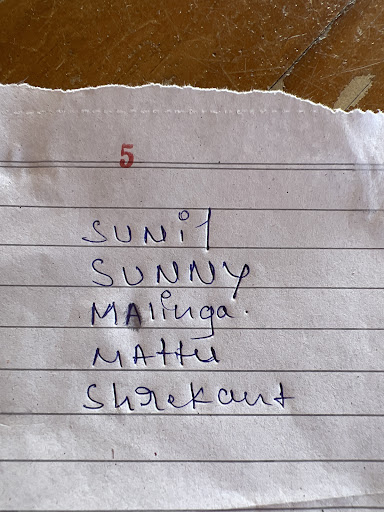 5
SUNil
SUNNY
MAlinga.
MAttu
Shrekant